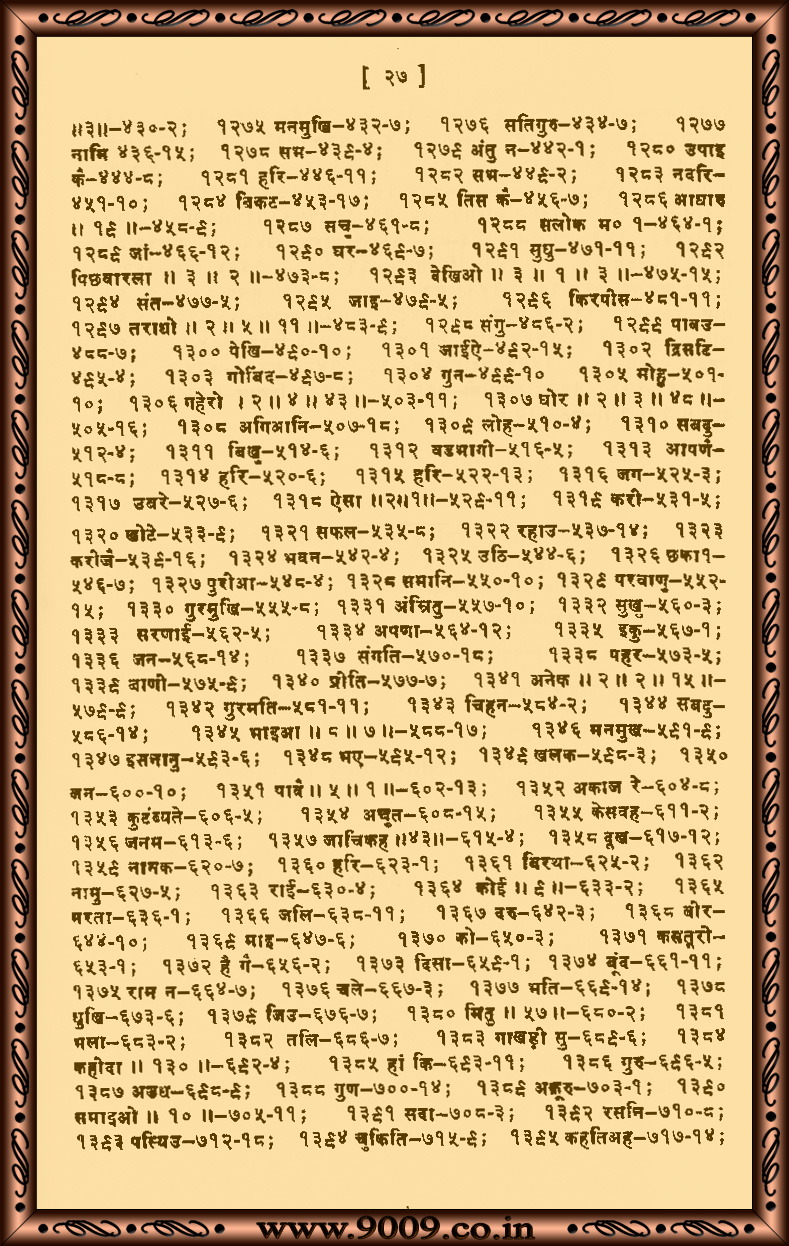 [ २७ ]
॥३॥–४३०-२; १२७५ मनमुखि–४३२-७; १२७६ सतिगुरु–४३४-७; १२७७
नाभि ४३६-१५; १२७८ सभ–४३९-४; १२७९ अंतु न–४४२-१; १२८० उपाइ
कै–४४४-८; १२८१ हरि–४४६-११; १२८२ सभ–४४९-२; १२८३ नदरि–
४५१-१०; १२८४ बिकट–४५३-१७; १२८५ तिस कै–४५६-७; १२८६ आधारु
॥ १९ ॥–४५८-९; १२८७ सचु–४६१-८; १२८८ सलोक म० १–४६४-१;
१२८९ जां–४६६-१२; १२९० घर–४६९-७; १२९१ सुघु–४७१-११; १२९२
पिछवारला ॥ ३ ॥ २ ॥–४७३-८; १२९३ देखिओ ॥ ३ ॥ १ ॥ ३ ॥–४७५-१५;
१२९४ संत–४७७-५; १२९५ जाइ–४७९-५; १२९६ किरपीस–४८१-११;
१२९७ तराधो ॥ २ ॥ ५ ॥ ११ ॥–४८३-९; १२९८ संगु–४८६-२; १२९९ पावउ–
४८८-७; १३०० पेखि–४९०-१०; १३०१ जाईऐ–४९२-१५; १३०२ द्रिसटि–
४९५-४; १३०३ गोबिंद–४९७-८; १३०४ गुन–४९९-१० १३०५ मोहु–५०१-
१०; १३०६ गहेरो । २ ॥ ४ ॥ ४३ ॥–५०३-११; १३०७ घोर ॥ २ ॥ ३ ॥ ४८ ॥–
५०५-१६; १३०८ अगिआनि–५०७-१८; १३०९ लोह–५१०-४; १३१० सबदु–
५१२-४; १३११ बिखु–५१४-६; १३१२ वडभागी–५१६-५; १३१३ आपणै–
५१८-८; १३१४ हरि–५२०-६; १३१५ हरि–५२२-१३; १३१६ जग–५२५-३;
१३१७ उबरे–५२७-६; १३१८ ऐसा ॥२॥१॥–५२९-११; १३१९ करी–५३१-५;
१३२० खोटे–५३३-९; १३२१ सफल–५३५-८; १३२२ रहाउ–५३७-१४; १३२३
करीजै–५३९-१६; १३२४ भवन–५४२-४; १३२५ उठि–५४४-६; १३२६ छका१–
५४६-७; १३२७ पुरीआ–५४८-४; १३२८ समानि–५५०-१०; १३२९ परवाणु–५५२-
१५; १३३० गुरमुखि–५५५-८; १३३१ अंम्रितु–५५७-१०; १३३२ सुखु–५६०-३;
१३३३ सरणाई–५६२-५; १३३४ अपणा–५६४-१२; १३३५ इकु–५६७-१;
१३३६ जन–५६८-१४; १३३७ संगति–५७०-१८; १३३८ पहर–५७३-५;
१३३९ बाणी–५७५-९; १३४० प्रीति–५७७-७; १३४१ अनेक ॥ २ ॥ २ ॥ १५ ॥–
५७९-९; १३४२ गुरमति–५८१-११; १३४३ चिहन–५८४-२; १३४४ सबदु–
५८६-१४; १३४५ भाइआ ॥ ८ ॥ ७ ॥–५८८-१७; १३४६ मनमुख–५९१-९;
१३४७ इसनानु–५९३-६; १३४८ भए–५९५-१२; १३४९ खलक–५९८-३; १३५०
जन–६००-१०; १३५१ पावै ॥ ५ ॥ १ ॥–६०२-१३; १३५२ अकाज रे–६०४-८;
१३५३ कुटंब्यते–६०६-५; १३५४ अचुत–६०८-१५; १३५५ केसवह–६११-२;
१३५६ जनम–६१३-६; १३५७ जाचिकह ॥४३॥–६१५-४; १३५८ दूख–६१७-१२;
१३५९ नानक–६२०-७; १३६० हरि–६२३-१; १३६१ बिरथा–६२५-२; १३६२
नामु–६२७-५; १३६३ राई–६३०-४; १३६४ कोई ॥ ९ ॥–६३३-२; १३६५
मरता–६३६-१; १३६६ जलि–६३८-११; १३६७ दरु–६४२-३; १३६८ बीर–
६४४-१०; १३६९ माइ–६४७-६; १३७० को–६५०-३; १३७१ कसतूरी–
६५३-१; १३७२ है गै–६५६-२; १३७३ दिसा–६५९-१; १३७४ बूंद–६६१-११;
१३७५ राम न–६६४-७; १३७६ चले–६६७-३; १३७७ भति–६६९-१४; १३७८
धुखि–६७३-६; १३७९ जिउ–६७६-७; १३८० मितु ॥ ५७॥–६८०-२; १३८१
भला–६८३-२; १३८२ तलि–६८६-७; १३८३ गाखड़ी सु–६८९-६; १३८४
कहीदा ॥ १३० ॥–६९२-४; १३८५ हां कि–६९३-११; १३८६ गुरु–६९६-५;
१३८७ अउध–६९८-९; १३८८ गुण–७००-१४; १३८९ अक्रूरु–७०३-१; १३९०
समाइओ ॥ १० ॥–७०५-११; १३९१ सदा–७०८-३; १३९२ रसनि–७१०-८;
१३९३ पस्यिउ–७१२-१८; १३९४ चुकिति–७१५-९; १३९५ कहतिअह–७१७-१४;
www.9009.co.in